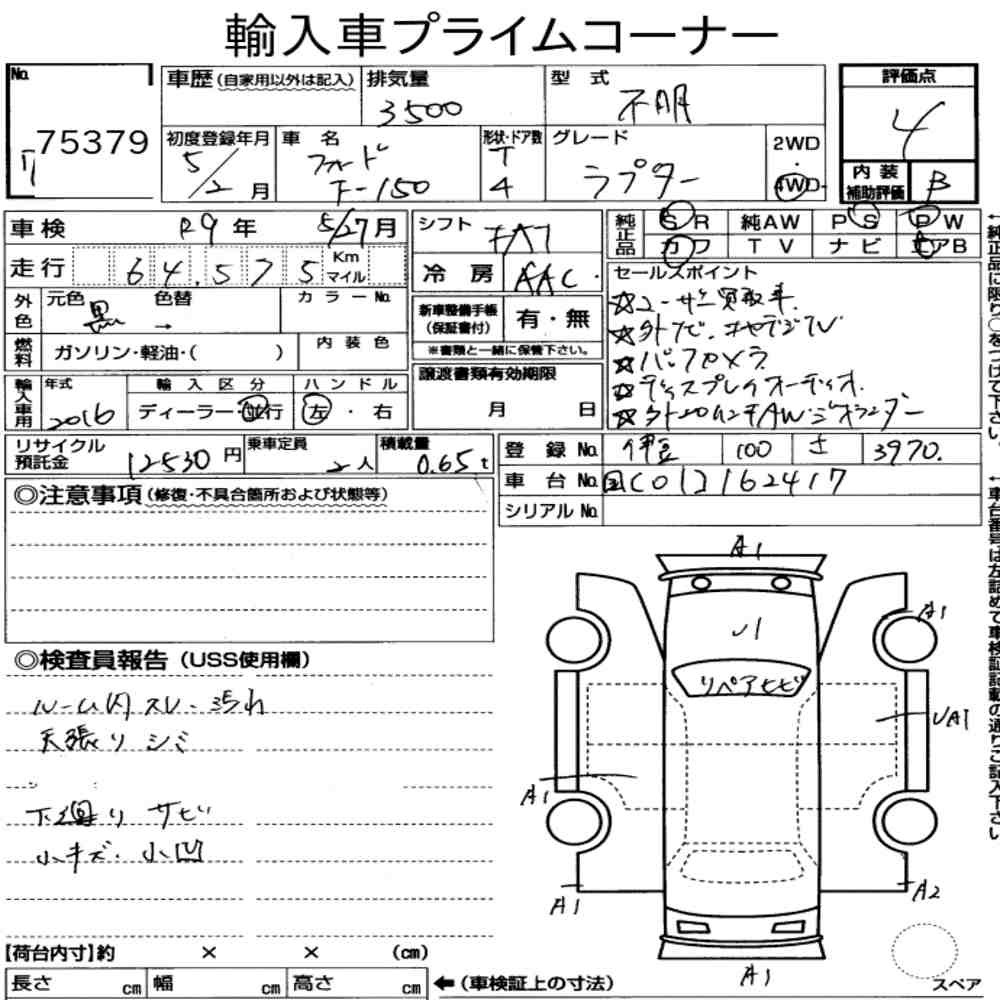 輸入車プライムコーナー
No. 75379
車歴(自家用以外は記入) 排気量 3500 型式 不明
評価点 4
初度登録年月 5/2月 車名 フォード F-150 形状・ドア数 T 4 グレード ラプター 2WD・4WD
内装補助評価 B
車検 R9年 5/27月 シフト FAT 純正品 SR 純AW PS PW
カワ TV ナビ エアB
走行 64,575 Km マイル 冷房 AAC
外色 元色 黒 色替 → カラーNo.
新車整備手帳(保証書付) 有・無
※書類と一緒に保管下さい。
燃料 ガソリン・軽油・( ) 内装色
セールスポイント
☆ユーザー買取車
☆外ナビ.地デジTV
☆バックカメラ
☆ディスプレイオーディオ.
☆外20インチAWジオランダー
輸入車用 年式 2016 輸入区分 ディーラー・並行 ハンドル 左・右
譲渡書類有効期限 月 日
リサイクル預託金 12530円 乗車定員 2人 積載量 0.65t
登録No. 伊豆 100 さ 3970.
車台No. 国[01]162417
シリアルNo.
◎注意事項(修復・不具合箇所および状態等)
◎検査員報告(USS使用欄)
ルーム内スレ・汚れ
天張りシミ
下廻りサビ
小キズ・小凹
A1
A1
リペアヒビ
A1
A1
A2
A1
【荷台内寸】約 × × (cm)
長さ cm 幅 cm 高さ cm ←(車検証上の寸法)
スペア
←純正品に限り○をつけて下さい。
←車台番号は左詰めで車検証記載の通りご記入下さい